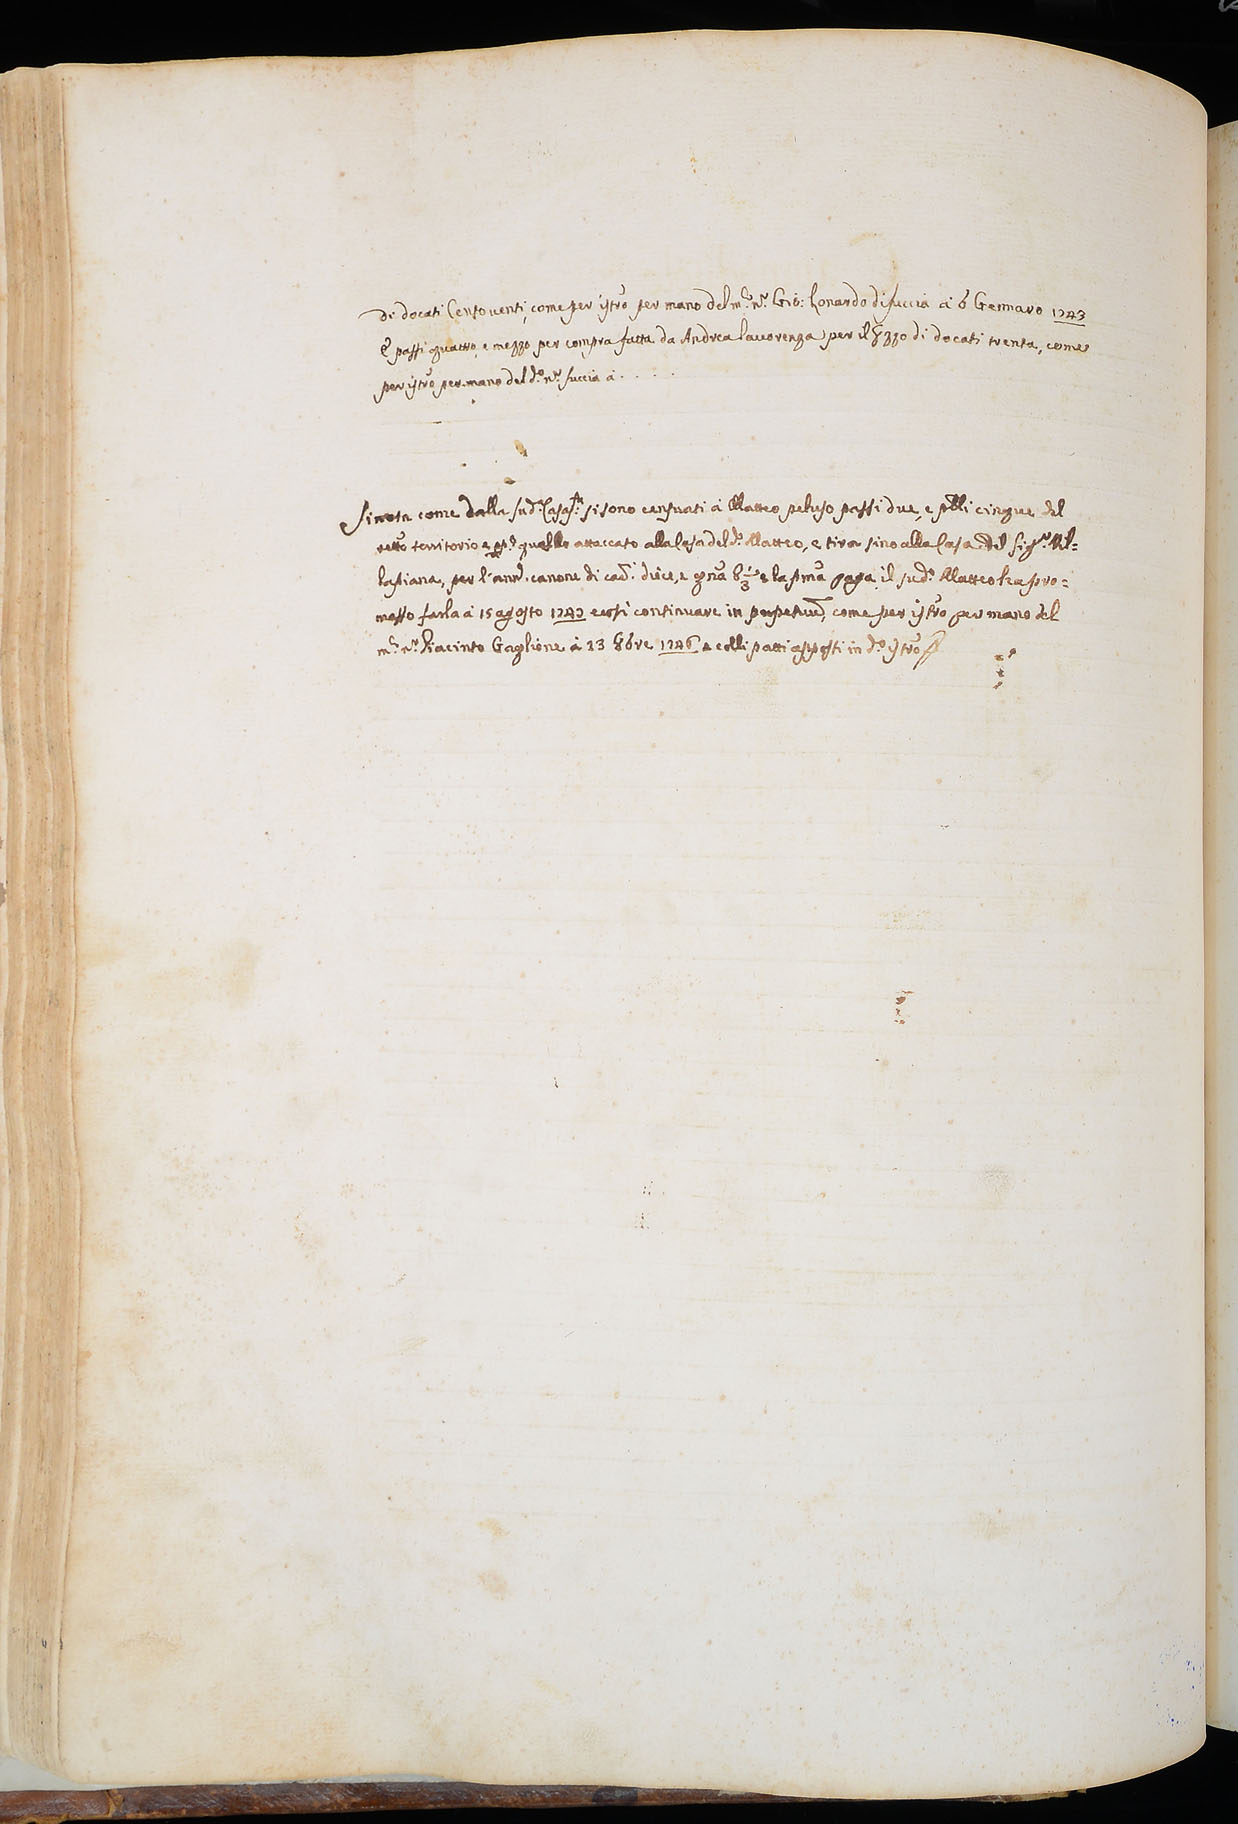 di docati Cento venti, come per istro per mano del m.co n.r Gio: Lonardo di fuccia à 6 Gennaro 1743
E passi quattro, e mezzo per compra fatta da Andrea Lavorenza per il przzo di docati trenta, come
per istro per mano del d.o n.r fuccia à . . . . .
Si nota come dalla sud.a Casa S.ta si sono censuati à Matteo peluso passi due, e palli cinque del
retto territorio e quello attaccato alla Casa del d.o Matteo, e tira sino alla Casa del Sig.r Vil=
lapiana, per l'ann. canone di car.i diece, e grna 8 1/3 e la pma paga il sud.o Matteo ha pro=
messo farla à 15 agosto 1747 e così continuare in perpetuum, come per istro per mano del
m.co n.r Giacinto Gaglione à 23 8bre 1746 e colli patti apposti in d.o istro